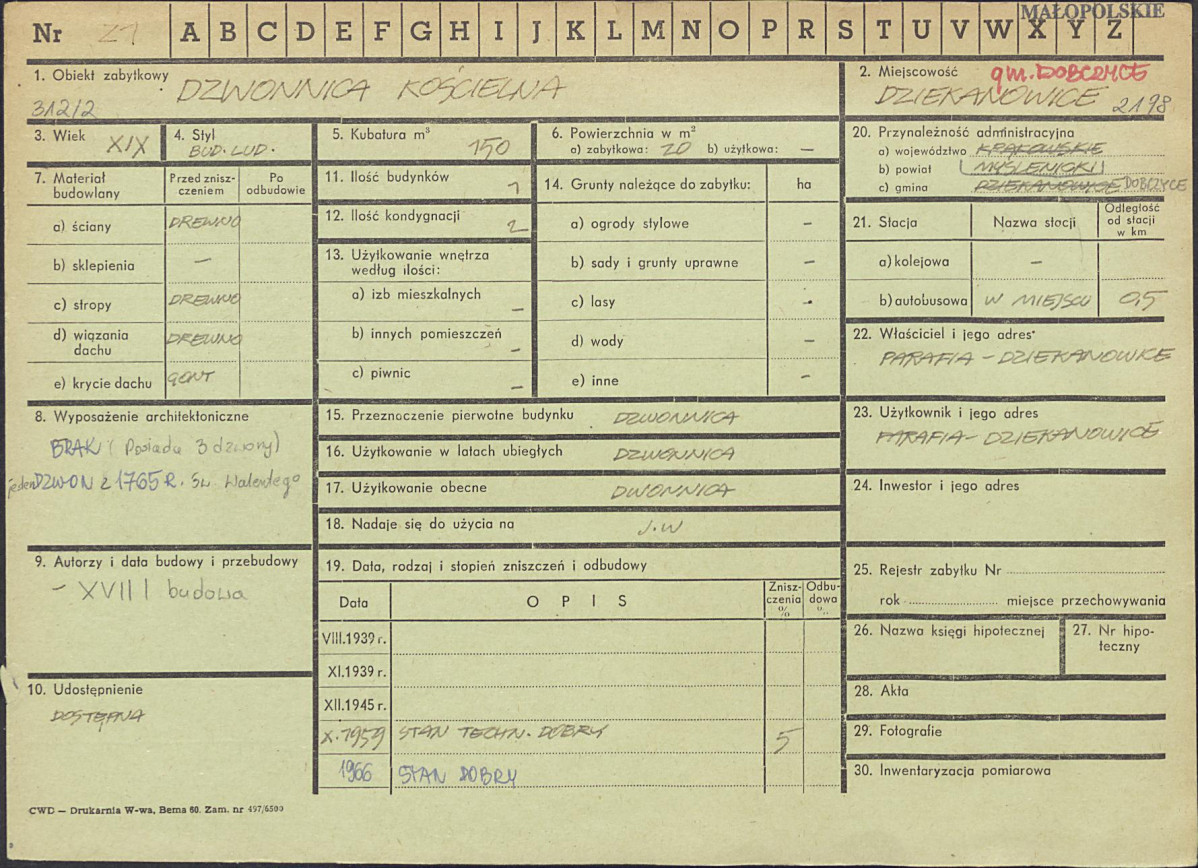 MAŁOPOLSKIE
Nr 21 A B C D E F G H I J K L M N O P R S T U V W X Y Z
1. Obiekt zabytkowy
DZWONNICA KOŚCIELNA
312/2
2. Miejscowość gm. DOBCZYCE
DZIEKANOWICE 2198
3. Wiek XIX
4. Styl
BUD. LUD.
5. Kubatura m³
150
6. Powierzchnia w m²
a) zabytkowa: 20 b) użytkowa: —
7. Materiał budowlany
Przed znisz-
czeniem
Po
odbudowie
a) ściany DREWNO
b) sklepienia —
c) stropy DREWNO
d) wiązania
dachu
DREWNO
e) krycie dachu GONT
8. Wyposażenie architektoniczne
BRAK (Posiada 3 dzwony)
jeden DZWON z 1765 R. Św. Walentego
9. Autorzy i data budowy i przebudowy
- XVIII budowa
10. Udostępnienie
DOSTĘPNA
11. Ilość budynków
1
12. Ilość kondygnacji
2
13. Użytkowanie wnętrza
według ilości:
a) izb mieszkalnych
—
b) innych pomieszczeń
—
c) piwnic
—
14. Grunty należące do zabytku: ha
a) ogrody stylowe —
b) sady i grunty uprawne —
c) lasy —
d) wody —
e) inne —
15. Przeznaczenie pierwotne budynku DZWONNICA
16. Użytkowanie w latach ubiegłych DZWONNICA
17. Użytkowanie obecne DWONNICA
18. Nadaje się do użycia na J.W
19. Data, rodzaj i stopień zniszczeń i odbudowy
Data
O P I S
Znisz-
czenia
%
Odbu-
dowa
%
VIII.1939 r.
XI.1939 r.
XII.1945 r.
X.1959 STAN TECHN. DOBRY 5
1966 STAN DOBRY
20. Przynależność administracyjna
a) województwo KRAKOWSKIE
b) powiat MYŚLENICKI
c) gmina DZIEKANOWICE DOBCZYCE
21. Stacja
Nazwa stocji
Odległość
od stacji
w km
a) kolejowa —
b) autobusowa W MIEJSCU 0,5
22. Właściciel i jego adres
PARAFIA - DZIEKANOWICE
23. Użytkownik i jego adres
PARAFIA - DZIEKANOWICE
24. Inwestor i jego adres
25. Rejestr zabytku Nr
rok miejsce przechowywania
26. Nazwa księgi hipotecznej
27. Nr hipo-
teczny
28. Akta
29. Fotografie
30. Inwentaryzacja pomiarowa
CWD — Drukarnia W-wa, Bema 60. Zam. nr 497/6500